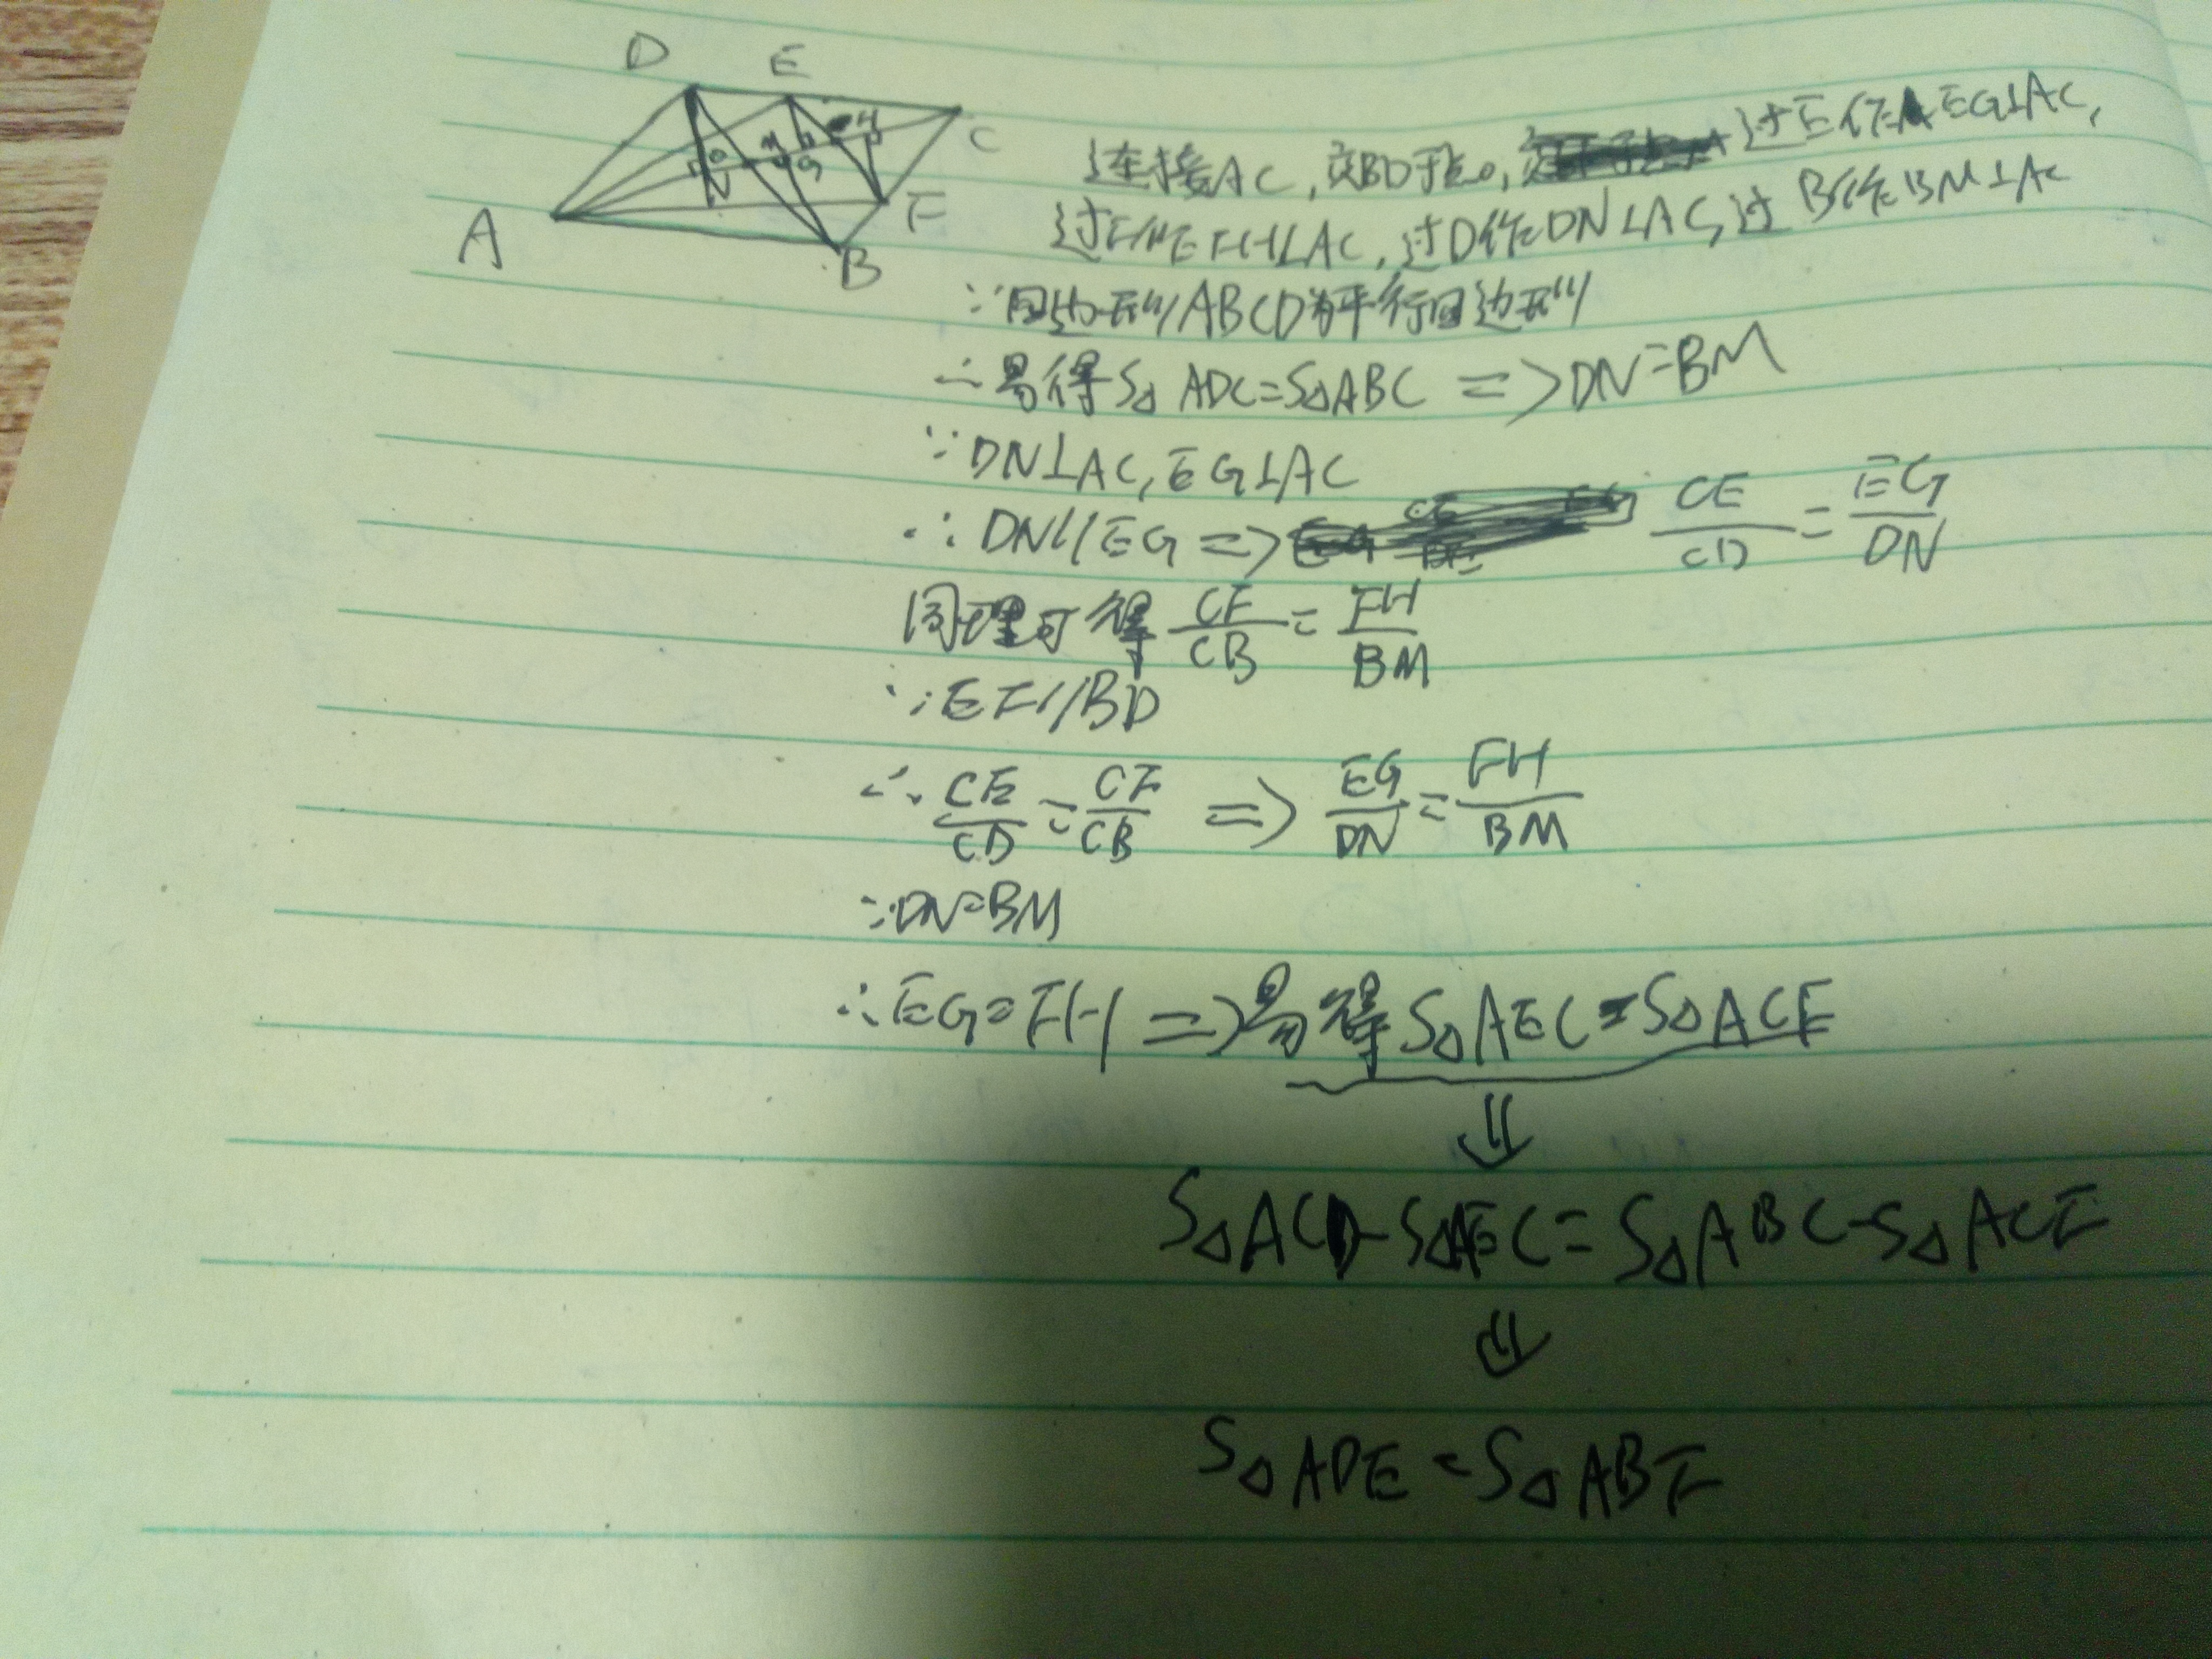 D E
C
A F
B
连接AC,交BD于点O,过E作EG⊥AC,
过F作FH⊥AC,过D作DN⊥AC,过B作BM⊥AC
∵四边形ABCD为平行四边形
∴易得S△ADC=S△ABC => DN=BM
∵DN⊥AC,EG⊥AC
∴DN//EG => CE/CD = EG/DN
同理可得 CF/CB = FH/BM
∵EF//BD
∴CE/CD = CF/CB => EG/DN = FH/BM
∵DN=BM
∴EG=FH => 易得S△AEC=S△ACF
⇓
S△ACD-S△AEC=S△ABC-S△ACF
⇓
S△ADE=S△ABF